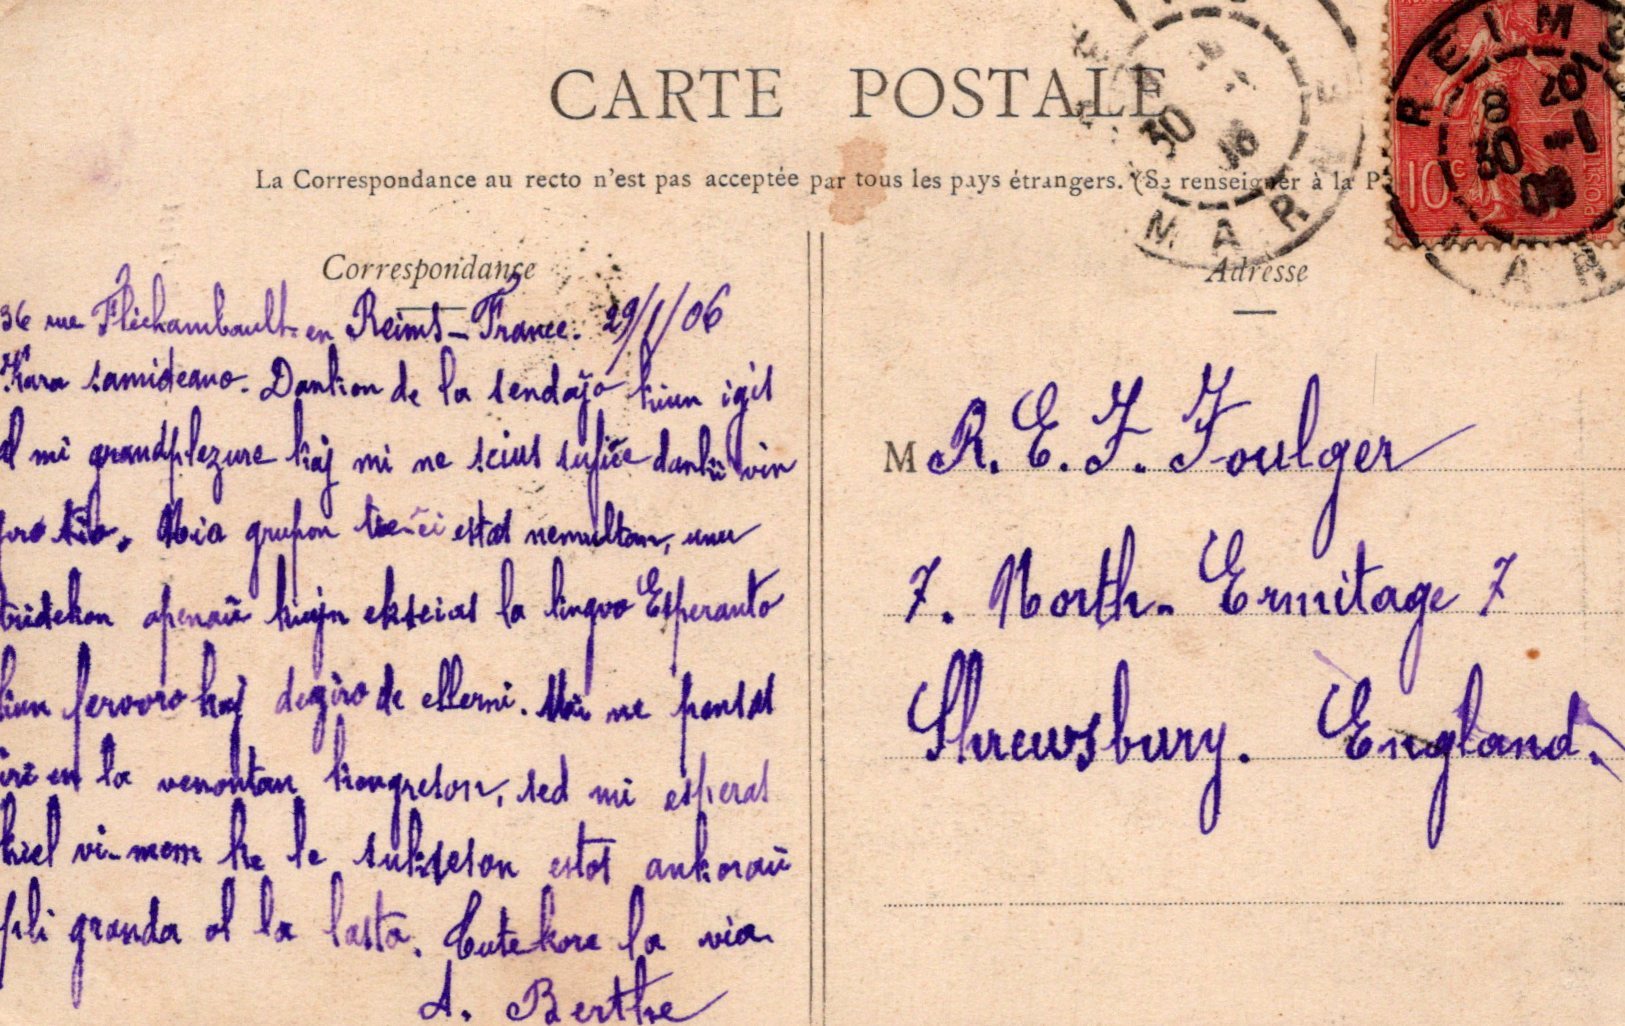 CARTE POSTALE
La Correspondance au recto n'est pas acceptée par tous les pays étrangers. (Se renseigner à la P
Correspondance
Adresse
36 rue Fléchambault en Reims - France. 29/1/06
Kara samideano. Dankon de la sendajo kiun igis
al mi grandplezure kaj mi ne scius sufiĉe danki vin
pro tio. Mia grupon tie-ĉi estas nemultan, unu
tridekon apenaŭ kiujn ekscias la lingvo Esperanto
kun fervoro kaj deziro de ellerni. Mi ne pensas
iri en la venontan kongreson, sed mi esperas
kiel vi-mem ke le sukseson estos ankoraŭ
pli granda ol la lasta. Tutekore la via
A. Berthe
M R. E. F. Foulger
7. North-Ermitage 7
Shrewsbury. England.
REIMS
8 20
30 -1
06
MAR
30
MARNE
10c
POSTES